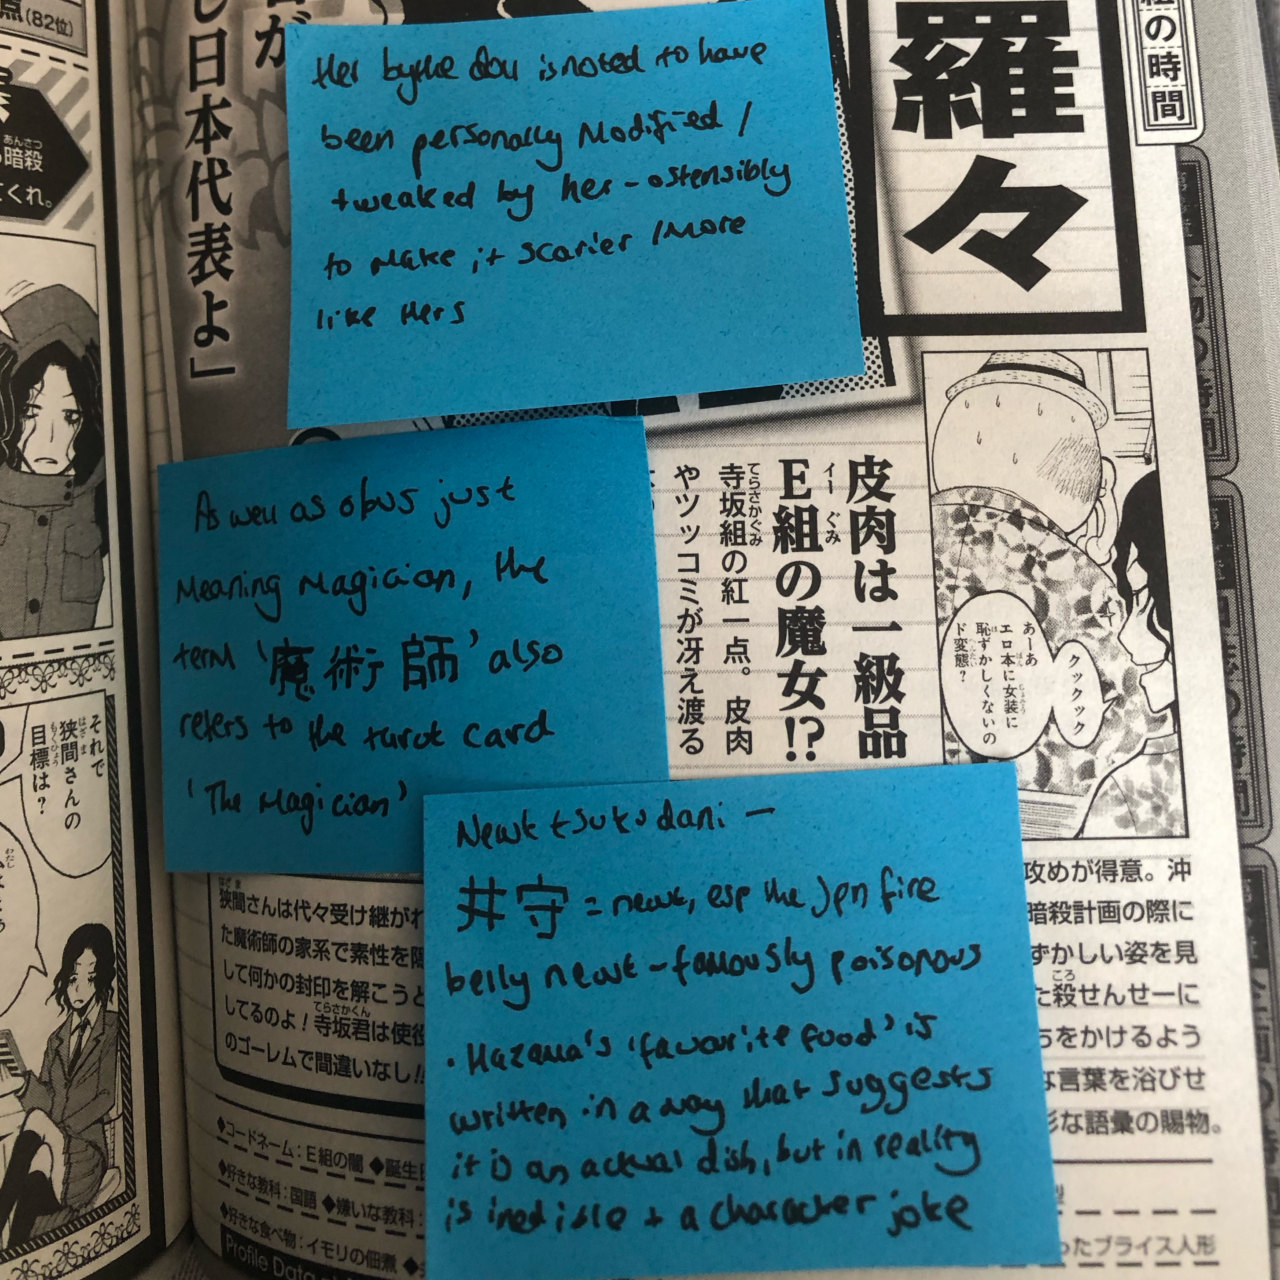 点(82位)
暗殺
あんさつ
くれ。
が
し日本代表よ」
羅々
の時間
Her bythe dou is noted to have
been personally Modified /
tweaked by her - ostensibly
to make it scarier / More
like Hers
As well as obvs just
Meaning Magician, the
term '魔術師' also
refers to the tarot card
'The Magician'
Newt tsukudani -
井守 = newt, esp the jpn fire
belly newt - famously poisonous
・Hazama's 'favourite food' is
written in a way that suggests
it is an actual dish, but in reality
is inedible + a character joke
皮肉は一級品
E組の魔女!?
イー ぐみ
寺坂組の紅一点。皮肉
てらさかぐみ
やツッコミが冴え渡る
クックック
あーあ
エロ本に女装に
恥ずかしくないの
ド変態?
それで
狭間さんの
目標は?
狭間さんは代々受け継がれ
た魔術師の家系で素性を隠
して何かの封印を解こうと
してるのよ!寺坂君は使役
のゴーレムで間違いなし!!
攻めが得意。沖
暗殺計画の際に
ずかしい姿を見
た殺せんせーに
ちをかけるよう
な言葉を浴びせ
彩な語彙の賜物。
◆コードネーム:E組の闇 ◆誕生日
◆好きな教科:国語 ◆嫌いな教科:
◆好きな食べ物:イモリの佃煮 ◆
ったブライス人形
Profile Data